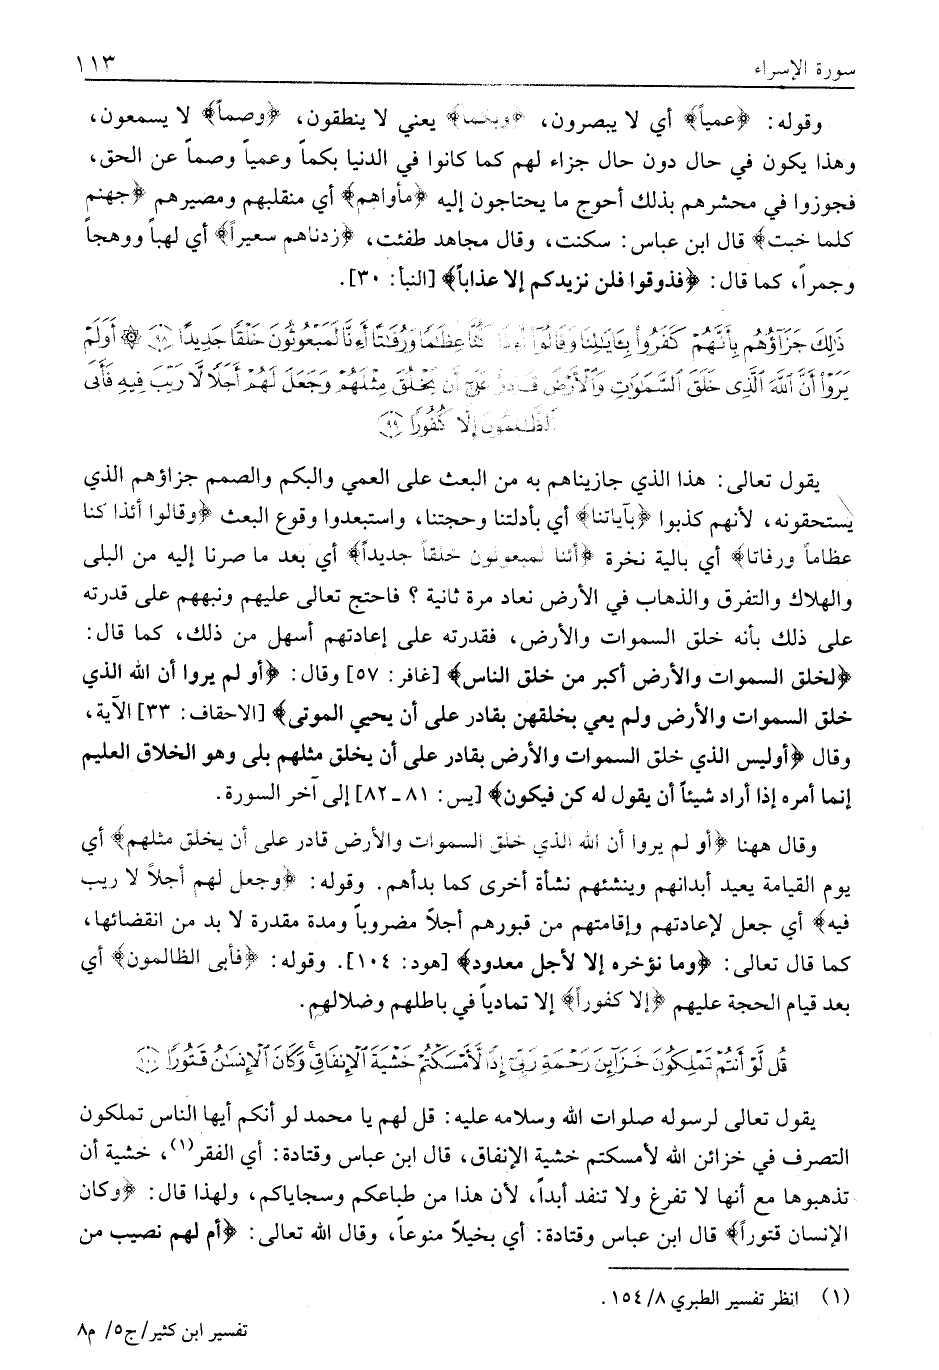 سورة الإسراء ١١٣
وقوله: ﴿عمياً﴾ أي لا يبصرون، ﴿وبكما﴾ يعني لا ينطقون، ﴿وصماً﴾ لا يسمعون،
وهذا يكون في حال دون حال جزاء لهم كما كانوا في الدنيا بكماً وعمياً وصماً عن الحق،
فجوزوا في محشرهم بذلك أحوج ما يحتاجون إليه ﴿مأواهم﴾ أي منقلبهم ومصيرهم ﴿جهنم
كلما خبت﴾ قال ابن عباس: سكنت، وقال مجاهد طفئت، ﴿زدناهم سعيراً﴾ أي لهباً ووهجاً
وجمراً، كما قال: ﴿فذوقوا فلن نزيدكم إلا عذاباً﴾ [النبأ: ٣٠].
ذَٰلِكَ جَزَآؤُهُم بِأَنَّهُمْ كَفَرُوا۟ بِـَٔايَـٰتِنَا وَقَالُوٓا۟ أَءِذَا كُنَّا عِظَـٰمًا وَرُفَـٰتًا أَءِنَّا لَمَبْعُوثُونَ خَلْقًا جَدِيدًا ﴿٩٨﴾ ۞ أَوَلَمْ
يَرَوْا۟ أَنَّ ٱللَّهَ ٱلَّذِى خَلَقَ ٱلسَّمَـٰوَٰتِ وَٱلْأَرْضَ قَادِرٌ عَلَىٰٓ أَن يَخْلُقَ مِثْلَهُمْ وَجَعَلَ لَهُمْ أَجَلًا لَّا رَيْبَ فِيهِ فَأَبَى
ٱلظَّـٰلِمُونَ إِلَّا كُفُورًا ﴿٩٩﴾
يقول تعالى: هذا الذي جازيناهم به من البعث على العمي والبكم والصمم جزاؤهم الذي
يستحقونه، لأنهم كذبوا ﴿بآياتنا﴾ أي بأدلتنا وحجتنا، واستبعدوا وقوع البعث ﴿وقالوا أئذا كنا
عظاماً ورفاتا﴾ أي بالية نخرة ﴿أئنا لمبعوثون خلقاً جديداً﴾ أي بعد ما صرنا إليه من البلى
والهلاك والتفرق والذهاب في الأرض نعاد مرة ثانية ؟ فاحتج تعالى عليهم ونبههم على قدرته
على ذلك بأنه خلق السموات والأرض، فقدرته على إعادتهم أسهل من ذلك، كما قال:
﴿لخلق السموات والأرض أكبر من خلق الناس﴾ [غافر: ٥٧] وقال: ﴿أو لم يروا أن الله الذي
خلق السموات والأرض ولم يعي بخلقهن بقادر على أن يحيي الموتى﴾ [الاحقاف: ٣٣] الآية،
وقال ﴿أوليس الذي خلق السموات والأرض بقادر على أن يخلق مثلهم بلى وهو الخلاق العليم
إنما أمره إذا أراد شيئاً أن يقول له كن فيكون﴾ [يس: ٨١ - ٨٢] إلى آخر السورة.
وقال ههنا ﴿أو لم يروا أن الله الذي خلق السموات والأرض قادر على أن يخلق مثلهم﴾ أي
يوم القيامة يعيد أبدانهم وينشئهم نشأة أخرى كما بدأهم. وقوله: ﴿وجعل لهم أجلاً لا ريب
فيه﴾ أي جعل لإعادتهم وإقامتهم من قبورهم أجلاً مضروباً ومدة مقدرة لا بد من انقضائها،
كما قال تعالى: ﴿وما نؤخره إلا لأجل معدود﴾ [هود: ١٠٤]. وقوله: ﴿فأبى الظالمون﴾ أي
بعد قيام الحجة عليهم ﴿إلا كفوراً﴾ إلا تمادياً في باطلهم وضلالهم.
قُل لَّوْ أَنتُمْ تَمْلِكُونَ خَزَآئِنَ رَحْمَةِ رَبِّىٓ إِذًا لَّأَمْسَكْتُمْ خَشْيَةَ ٱلْإِنفَاقِ ۚ وَكَانَ ٱلْإِنسَـٰنُ قَتُورًا ﴿١٠٠﴾
يقول تعالى لرسوله صلوات الله وسلامه عليه: قل لهم يا محمد لو أنكم أيها الناس تملكون
التصرف في خزائن الله لأمسكتم خشية الإنفاق، قال ابن عباس وقتادة: أي الفقر(١)، خشية أن
تذهبوها مع أنها لا تفرغ ولا تنفد أبداً، لأن هذا من طباعكم وسجاياكم، ولهذا قال: ﴿وكان
الإنسان قتوراً﴾ قال ابن عباس وقتادة: أي بخيلاً منوعاً، وقال الله تعالى: ﴿أم لهم نصيب من
(١) انظر تفسير الطبري ٨/ ١٥٤.
تفسير ابن كثير/ ج٥/ م٨